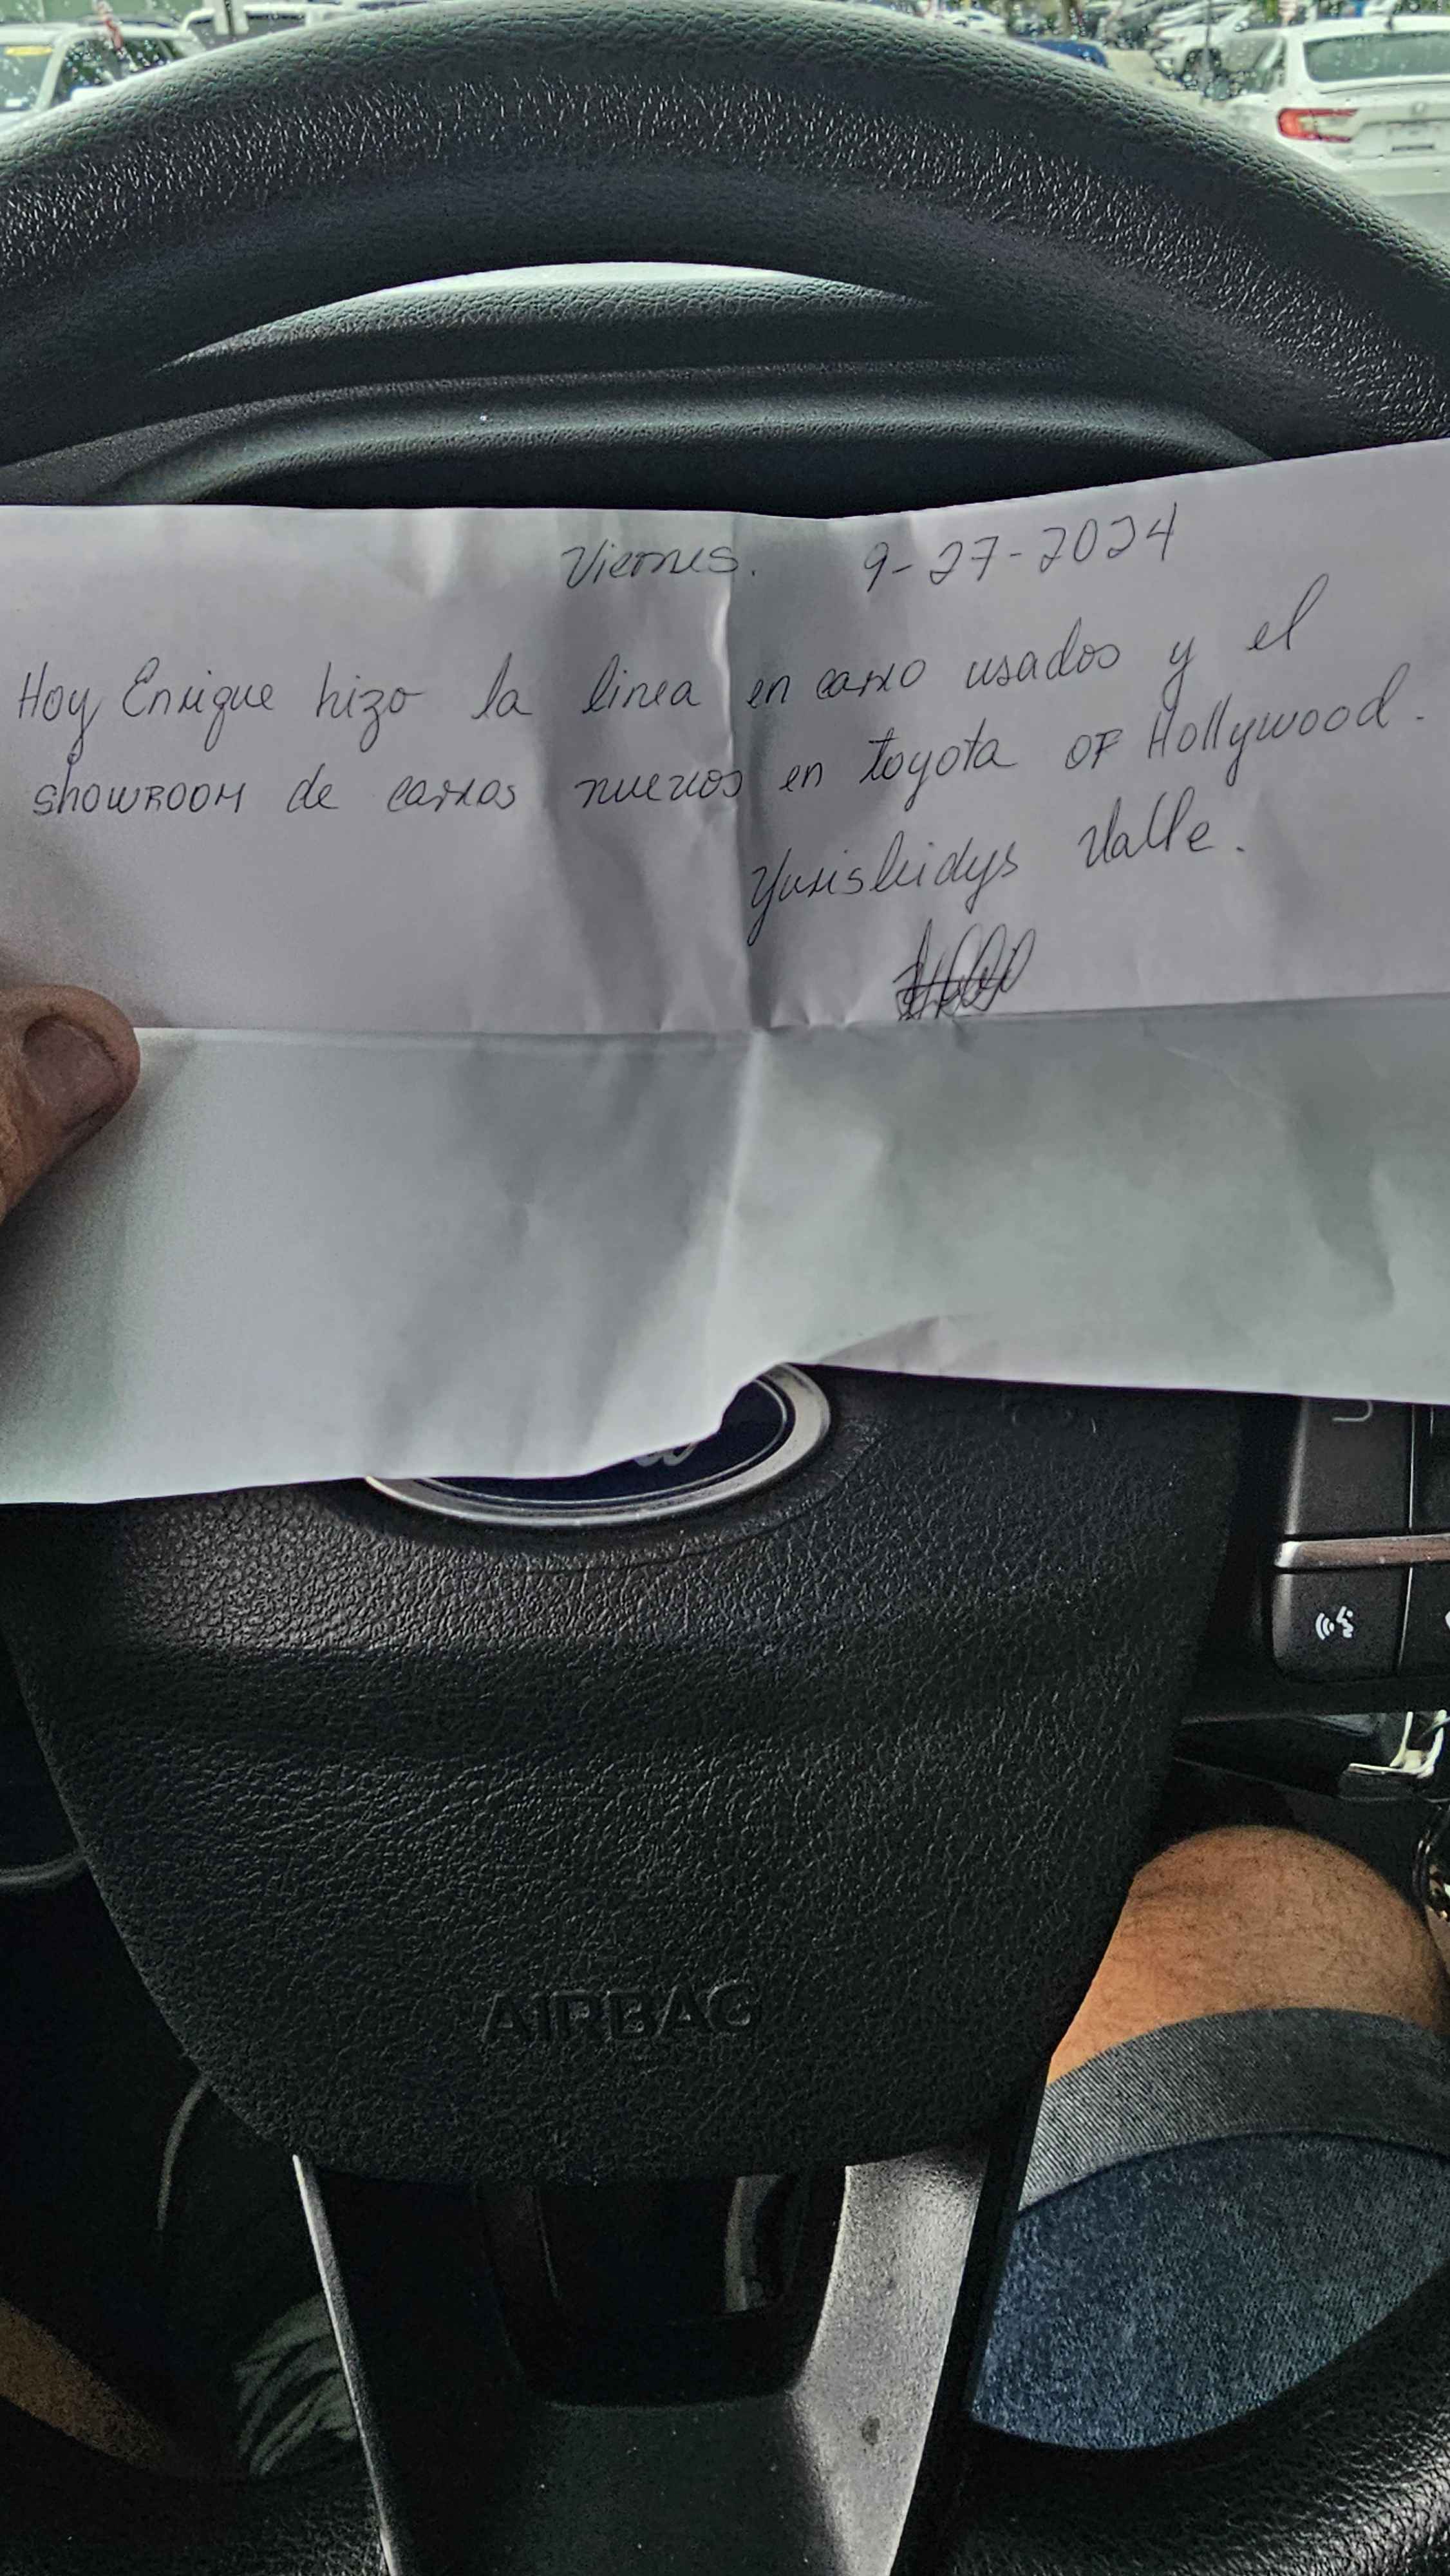 Viernes. 9-27-2024
Hoy Enrique hizo la linea en carro usados y el
showroom de carros nuevos en toyota OF Hollywood.
Yurisleidys Valle.
AIRBAG